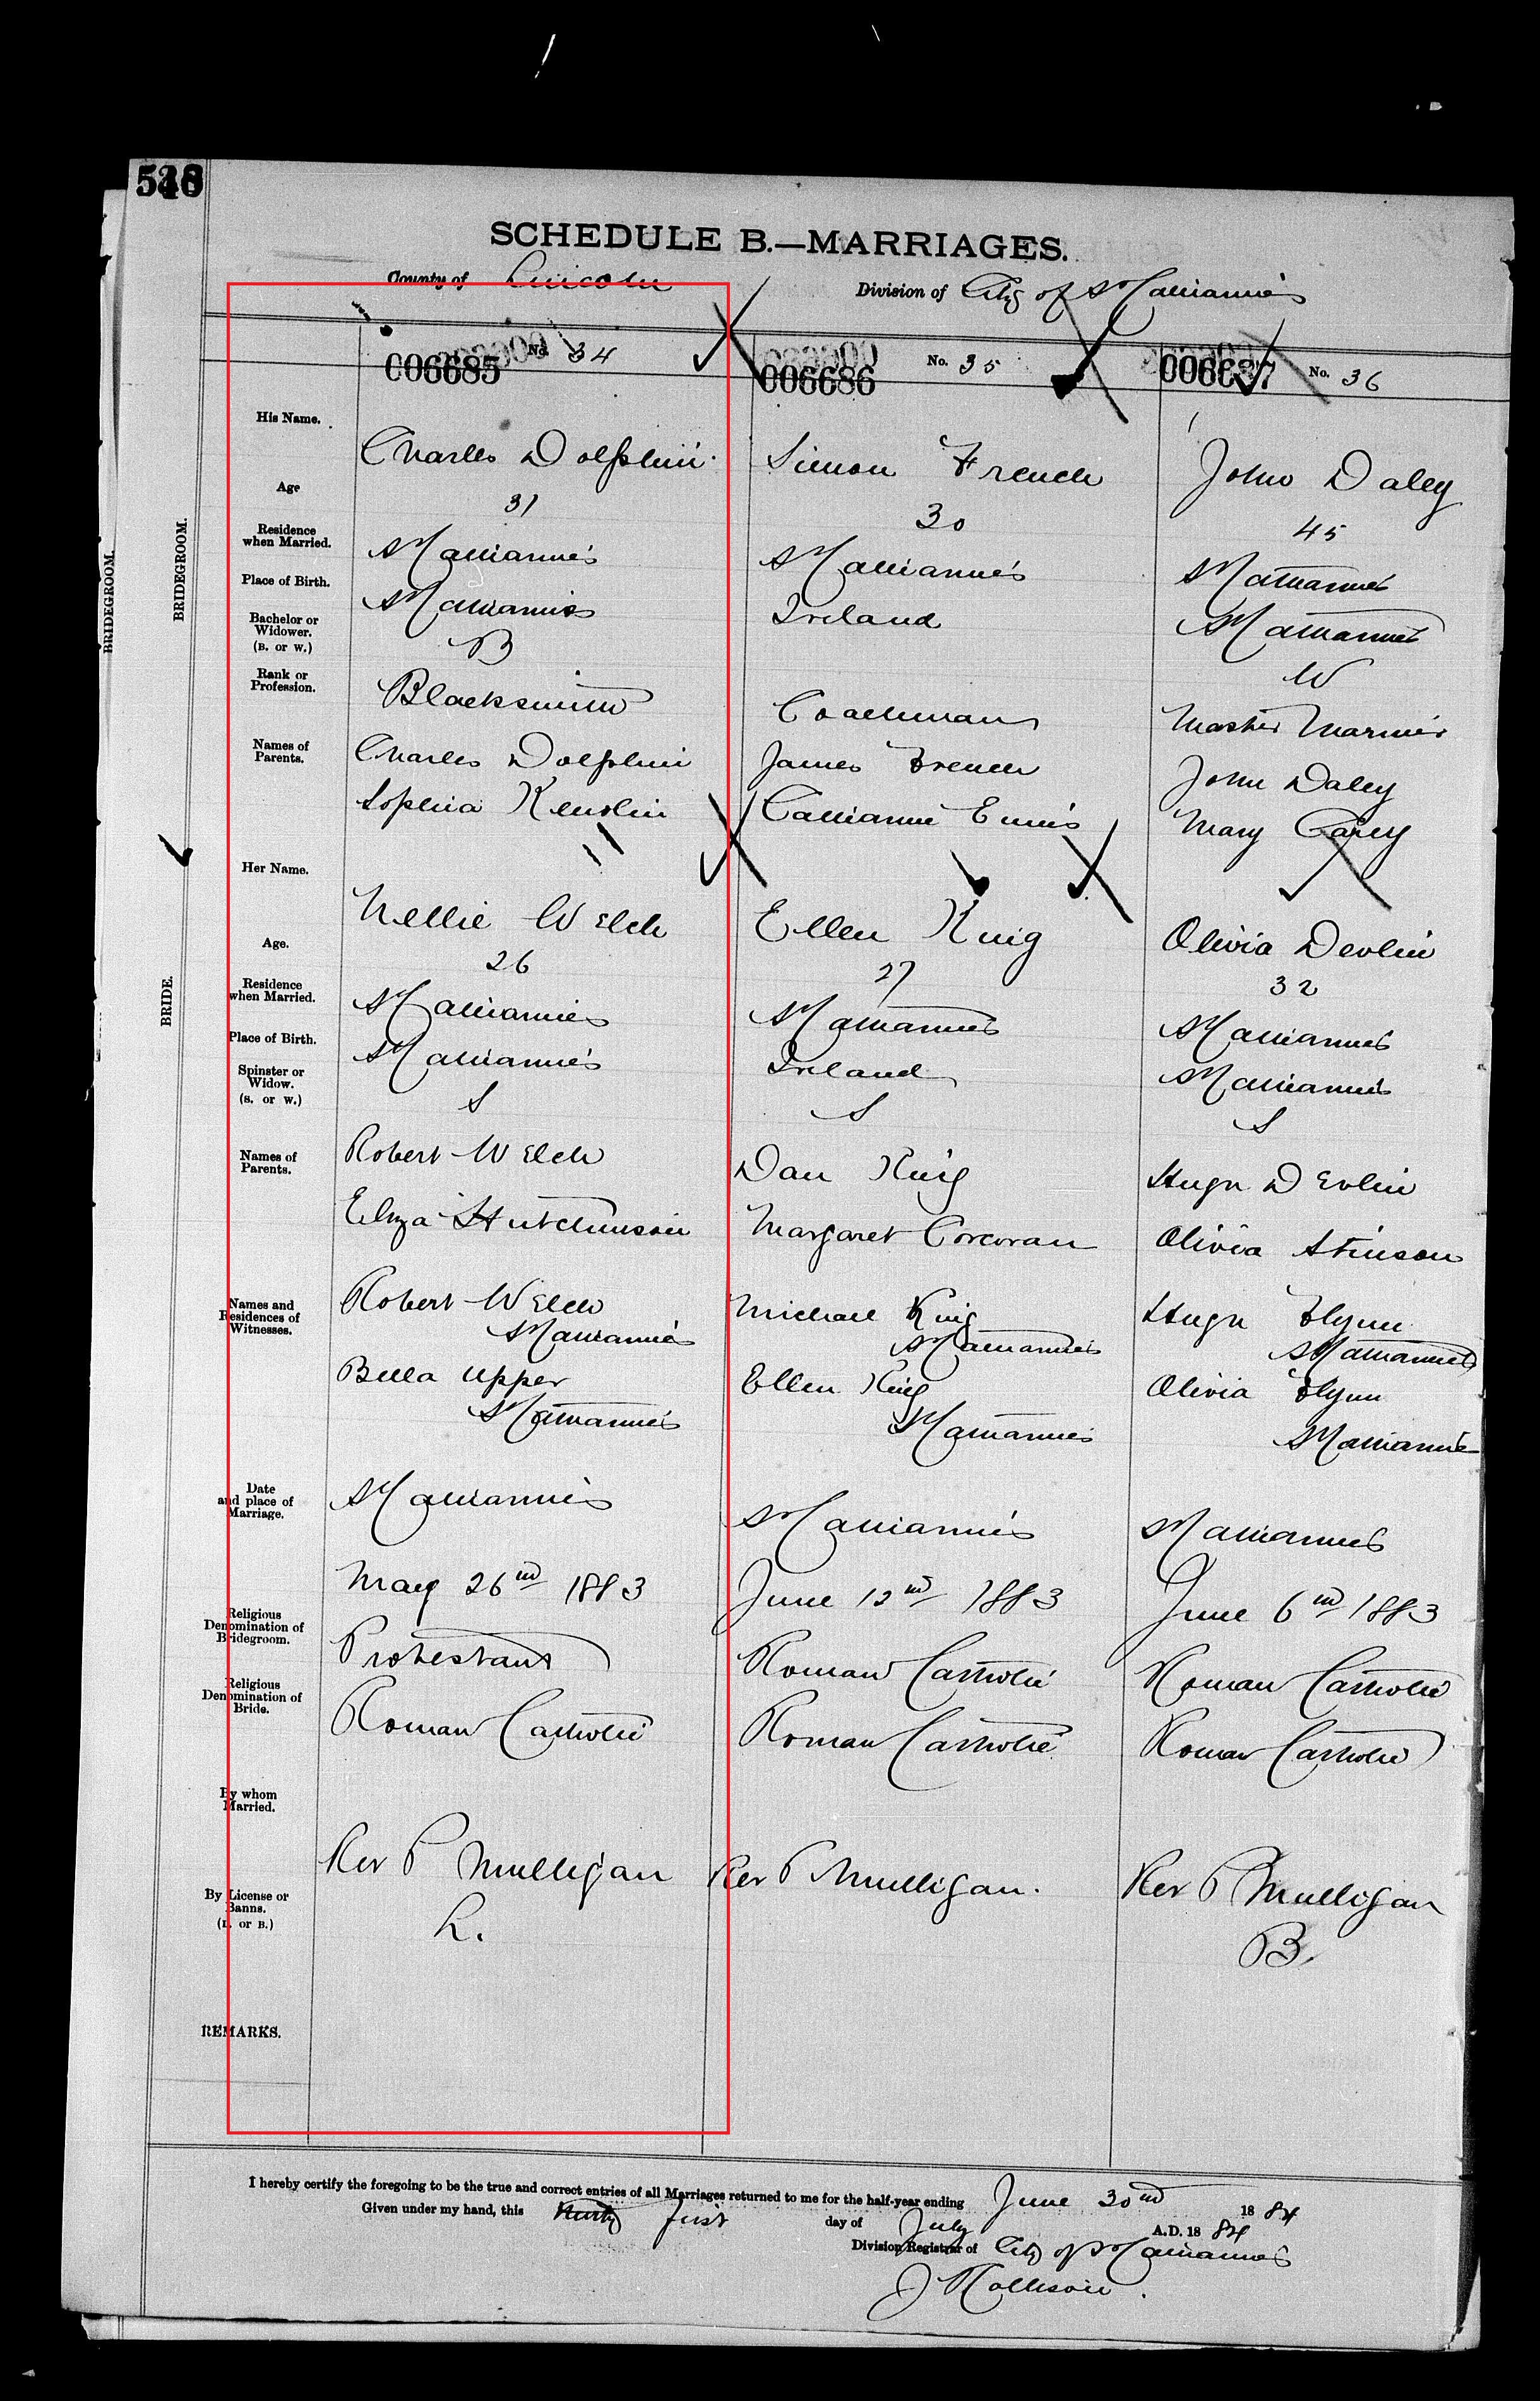 SCHEDULE B.—MARRIAGES.
County of Lincoln Division of City of St Catharines
006685 No. 34 006686 No. 35 No. 36
His Name. Charles Dolphin Simon French John Daley
Age 31 30 45
Residence when Married. St Catharines St Catharines St Catharines
Place of Birth. St Catharines Ireland St Catharines
Bachelor or Widower. (B. or W.) B W
Rank or Profession. Blacksmith Coachman Master Mariner
Names of Parents. Charles Dolphin James French John Daley
Sophia Catharine Ennis Mary Carey
BRIDEGROOM.
BRIDEGROOM.
Her Name. Nellie Welch Ellen King Olivia Devlin
Age. 26 27 32
Residence when Married. St Catharines St Catharines St Catharines
Place of Birth. St Catharines Ireland St Catharines
Spinster or Widow. (S. or W.) S S S
Names of Parents. Robert Welch Dan King Hugh Devlin
Eliza Hutchinson Margaret Corcoran Olivia Stinson
BRIDE.
Names and Residences of Witnesses. Robert Welch Michael King Hugh Flynn
St Catharines St Catharines St Catharines
Bella Upper Ellen King Olivia Flynn
St Catharines St Catharines St Catharines
Date and place of Marriage. St Catharines St Catharines St Catharines
May 26nd 1883 June 12nd 1883 June 6nd 1883
Religious Denomination of Bridegroom. Protestant Roman Catholic Roman Catholic
Religious Denomination of Bride. Roman Catholic Roman Catholic Roman Catholic
By whom Married. Rev P Mulligan Rev P Mulligan. Rev P Mulligan
By License or Banns. (L. or B.) L. B.
REMARKS.
I hereby certify the foregoing to be the true and correct entries of all Marriages returned to me for the half-year ending June 30nd 1884
Given under my hand, this first day of July A.D. 1884
Division Registrar of City of St Catharines